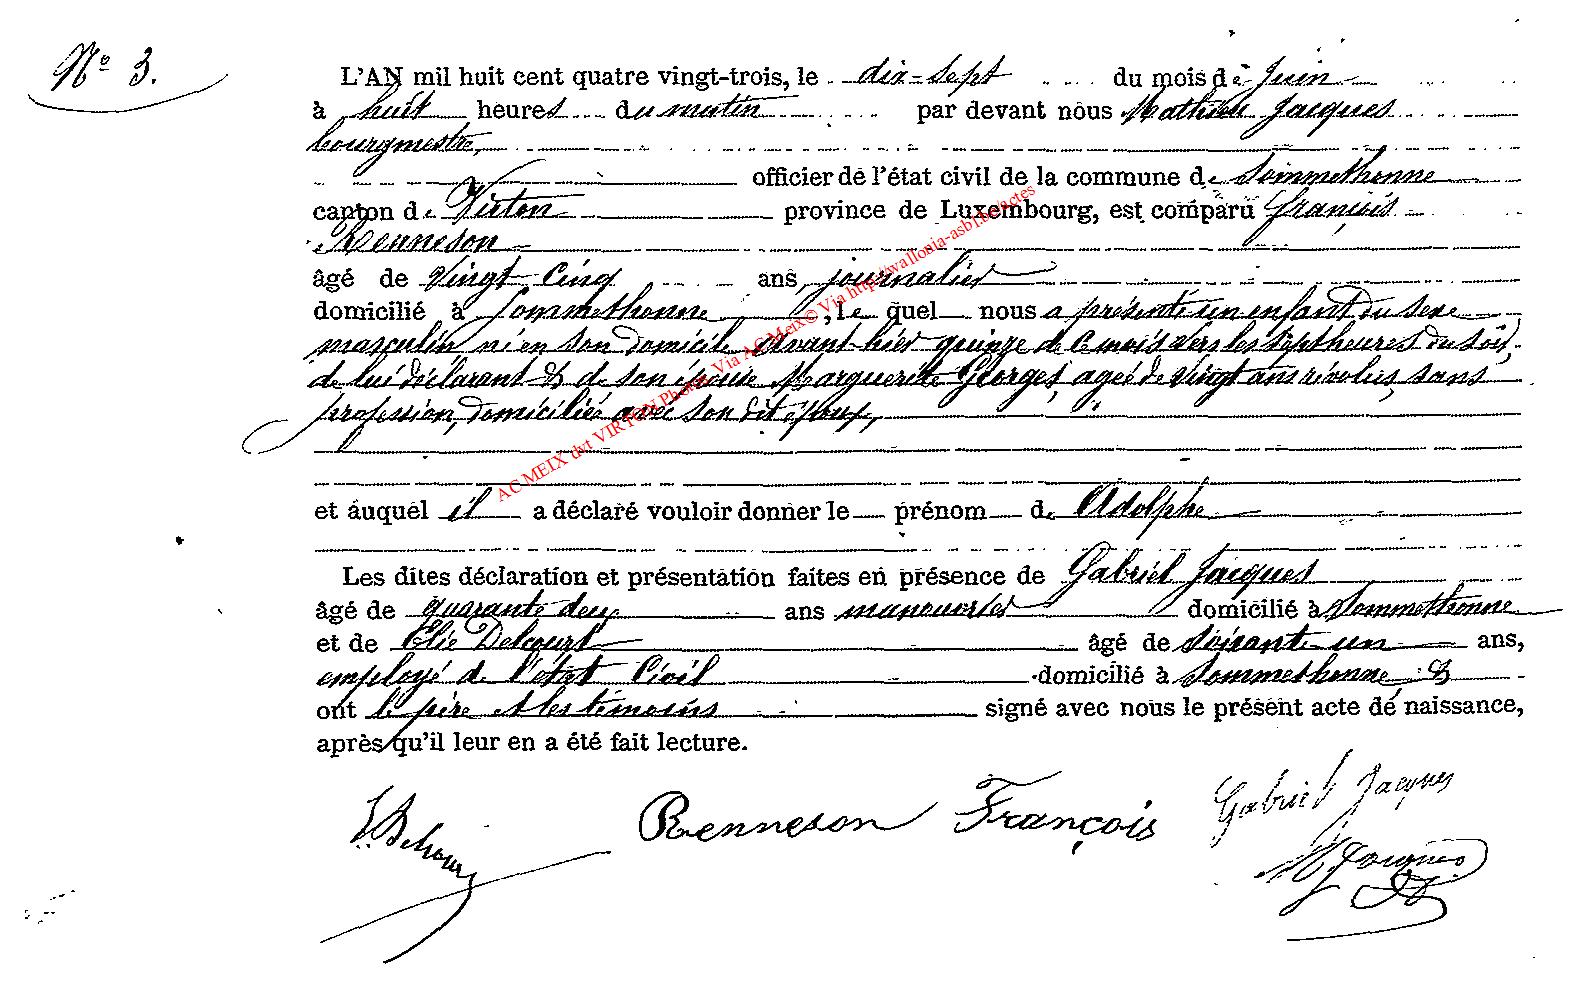 N° 3.
L'AN mil huit cent quatre vingt-trois, le dix-sept du mois de Juin
à huit heures du matin par devant nous Mathieu Jacques
bourgmestre,
officier de l'état civil de la commune de Sommethonne
canton de Virton province de Luxembourg, est comparu François
Renneson
âgé de vingt cinq ans, journalier
domicilié à Sommethonne, le quel nous a présenté un enfant du sexe
masculin né en son domicile avant hier quinze de ce mois vers les sept heures du soir,
de lui déclarant & de son épouse Marguerite Georges, agée de vingt ans révolus, sans
profession, domiciliée avec son dit époux,
et auquel il a déclaré vouloir donner le prénom de Adolphe
Les dites déclaration et présentation faites en présence de Gabriel Jacques
âgé de quarante deux ans manouvrier domicilié à Sommethonne
et de Elie Delcourt âgé de soixante un ans,
employé de l'état Civil domicilié à Sommethonne &
ont le père et les témoins signé avec nous le présent acte de naissance,
après qu'il leur en a été fait lecture.
E. Delcourt Renneson François Gabriel Jacques
M Jacques
AC MEIX dvt VIRTON Photo. Via AC Meix© Via http://wallonia-asbl.be/actes